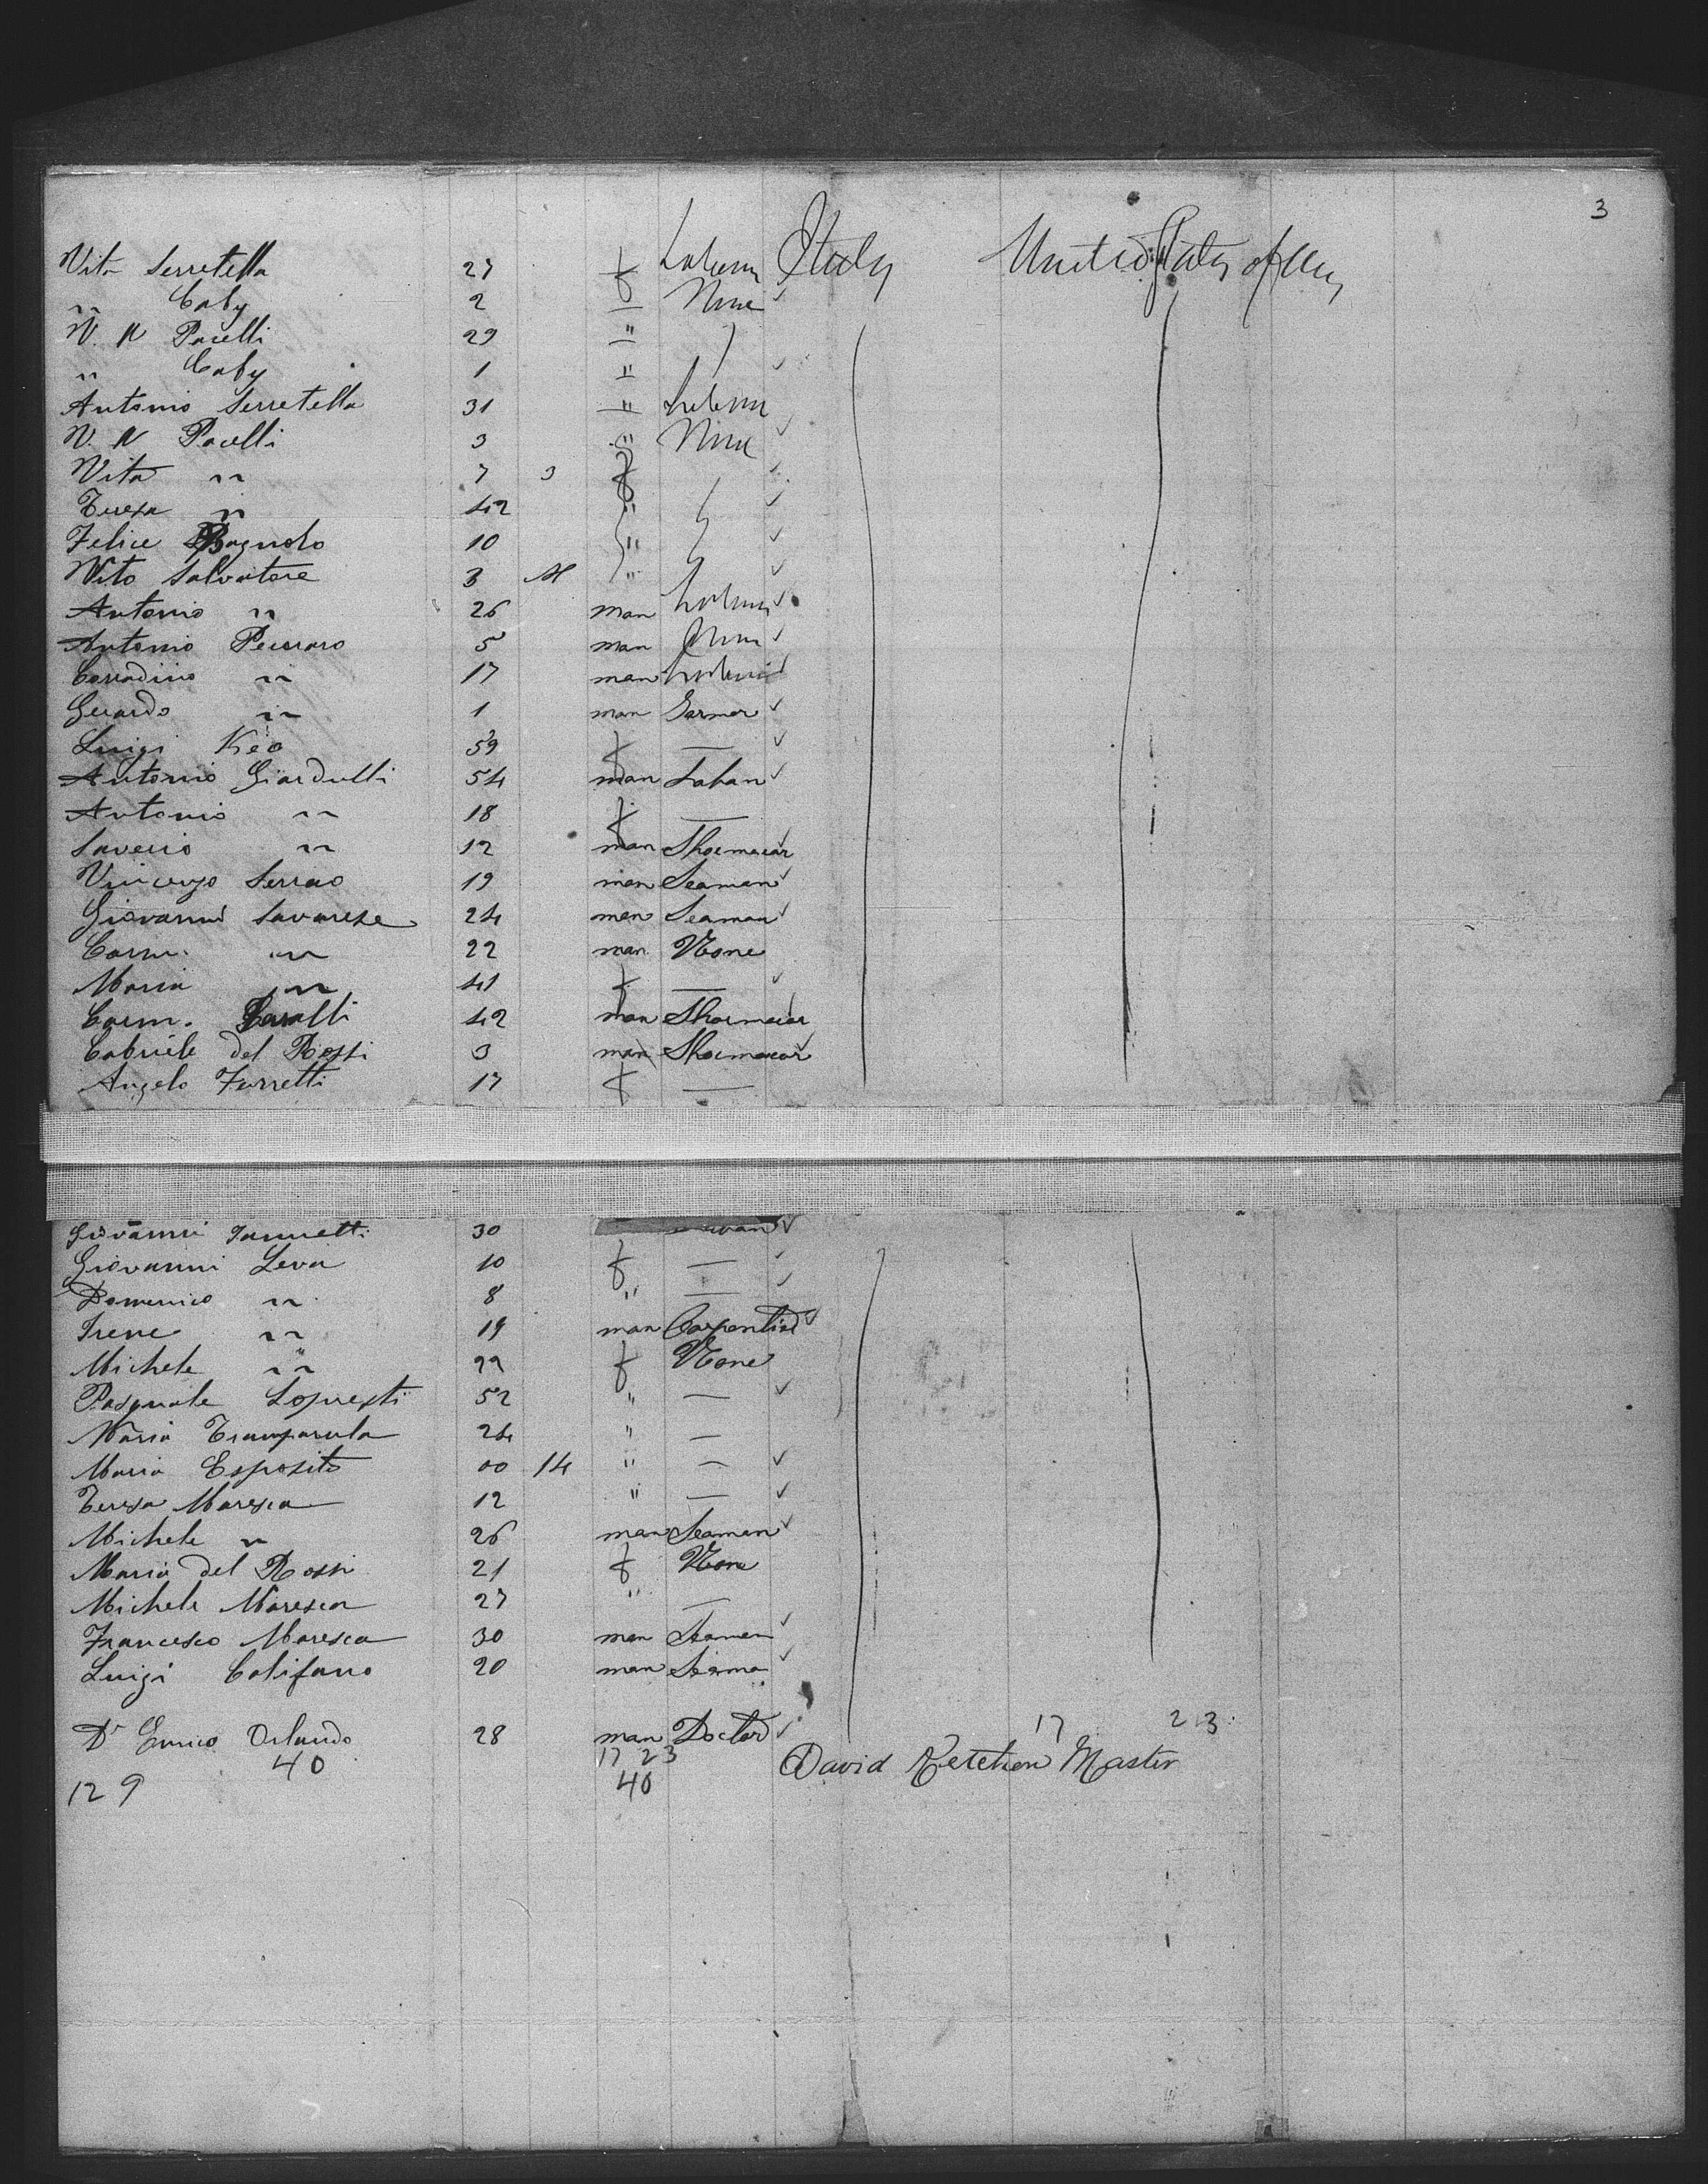 3
Vito Serretella 27 f Laborer Italy United States of Am
" Caby 2 — None
V. N Pacelli 29 "
" Caby 1 "
Antonio Serretella 31 " Laborer
V. N Pacelli 3 " None
Vita " 7 3 f
Teresa " 42 "
Felice Bagnolo 10 "
Vito Salvatore 3 M "
Antonio " 26 man Laborer
Antonio Pecoraro 5 man None
Corradino " 17 man Laborer
Gerardo " 1 man Farmer
Luigi Neo 59 f —
Antonio Giardulli 54 man
Antonio " 18 f —
Saverio " 12 man Shoemacar
Vincenzo Serrao 19 man Seaman
Giovanni Savarese 24 man Seaman
Carm. " 22 man None
Maria " 41 f —
Carm. 42 man Shoemacar
Cabriele del Rossi 3 man Shoemacar
Angelo Ferretti 17 f —
Giovanni Iannetti 30
Giovanni Leva 10 f —
Domenico " 8 " —
Irene " 19 man
Michele " 22 f None
Pasquale Lopresti 52 " —
Maria 24 " —
Maria Esposito 00 14 " —
Teresa Maresca 12 " —
Michele " 26 man Seaman
Maria del Rossi 21 f None
Michele Maresca 27 " —
Francesco Maresca 30 man Seaman
Luigi Califano 20 man Seama
17 23
Dr Enrico Orlando 28 man Doctor
40 17 23 David Master
129 40